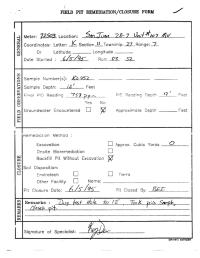 FIELD PIT REMEDIATION/CLOSURE FORM
GENERAL
Meter: Location: San Juan 28-7 Unit
Coordinates: Letter: Section Township: 27 Range: 7
Or Latitude Longitude
Date Started: 6/5/95 Run: 03 52
FIELD OBSERVATIONS
Sample Number(s): KD 952
Sample Depth: 12' Feet
Final PID Reading PID Reading Depth 12' Feet
Yes No
Groundwater Encountered Approximate Depth Feet
CLOSURE
Remediation Method:
Excavation Approx. Cubic Yards 0
Onsite Bioremediation
Backfill Pit Without Excavation
Soil Disposition:
Envirotech Tierra
Other Facility Name:
Pit Closure Date: 6/5/95 Pit Closed By: BEI
REMARKS
Remarks: Dug test hole to 12'. Took PID Sample,
Closed pit.
Signature of Specialist: